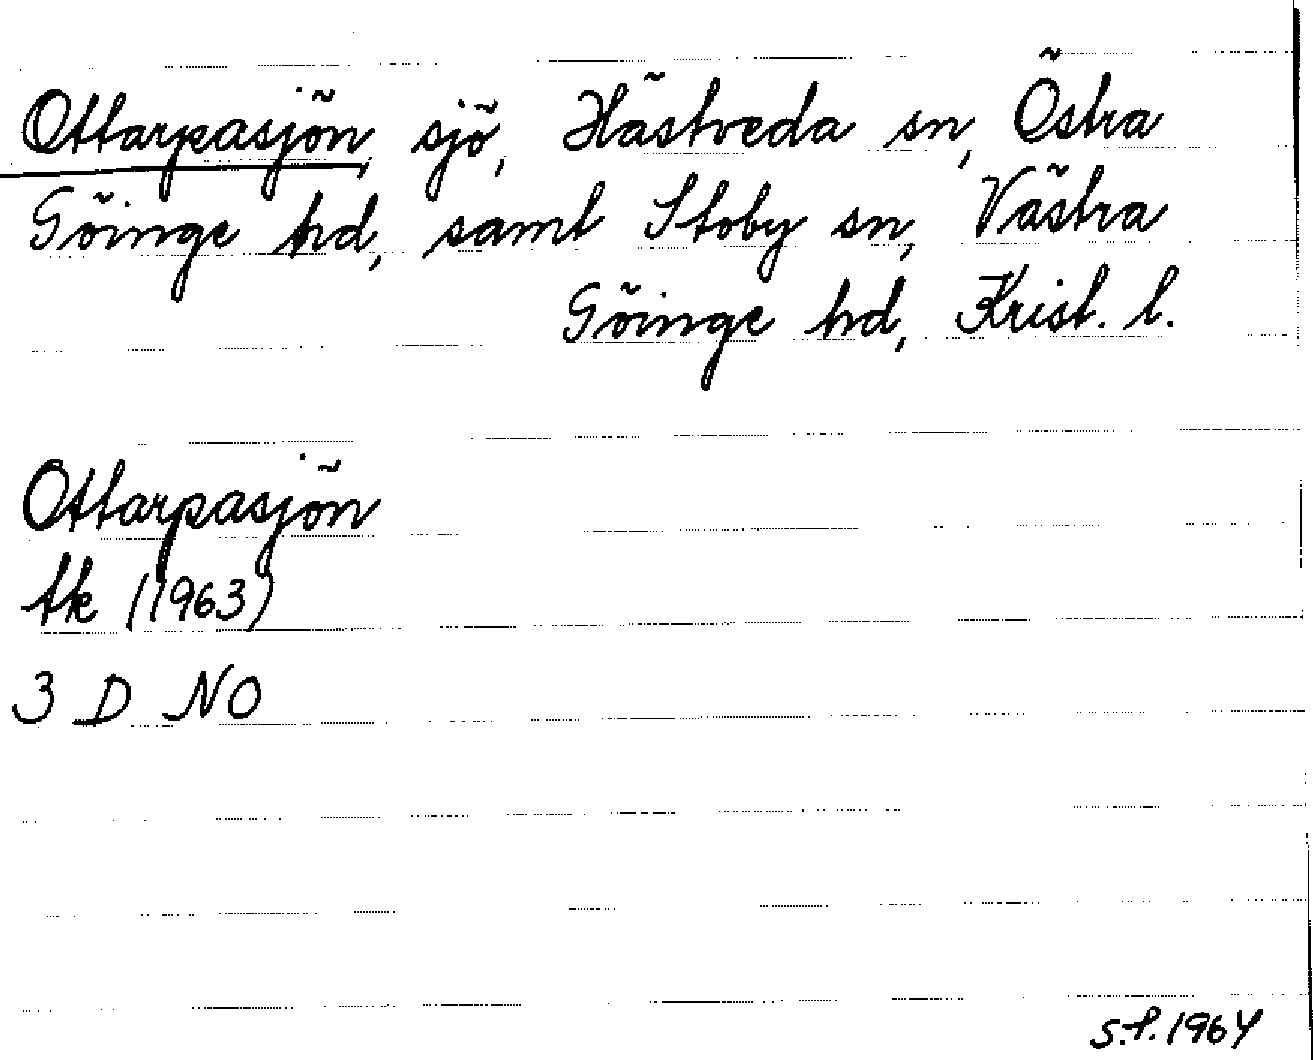 Ottarpasjön, sjö, Hästveda sn, Östra
Göinge hd, samt Stoby sn, Västra
Göinge hd, Krist. l.
Ottarpasjön
tk (1963)
3 D NO
S.F. 1964